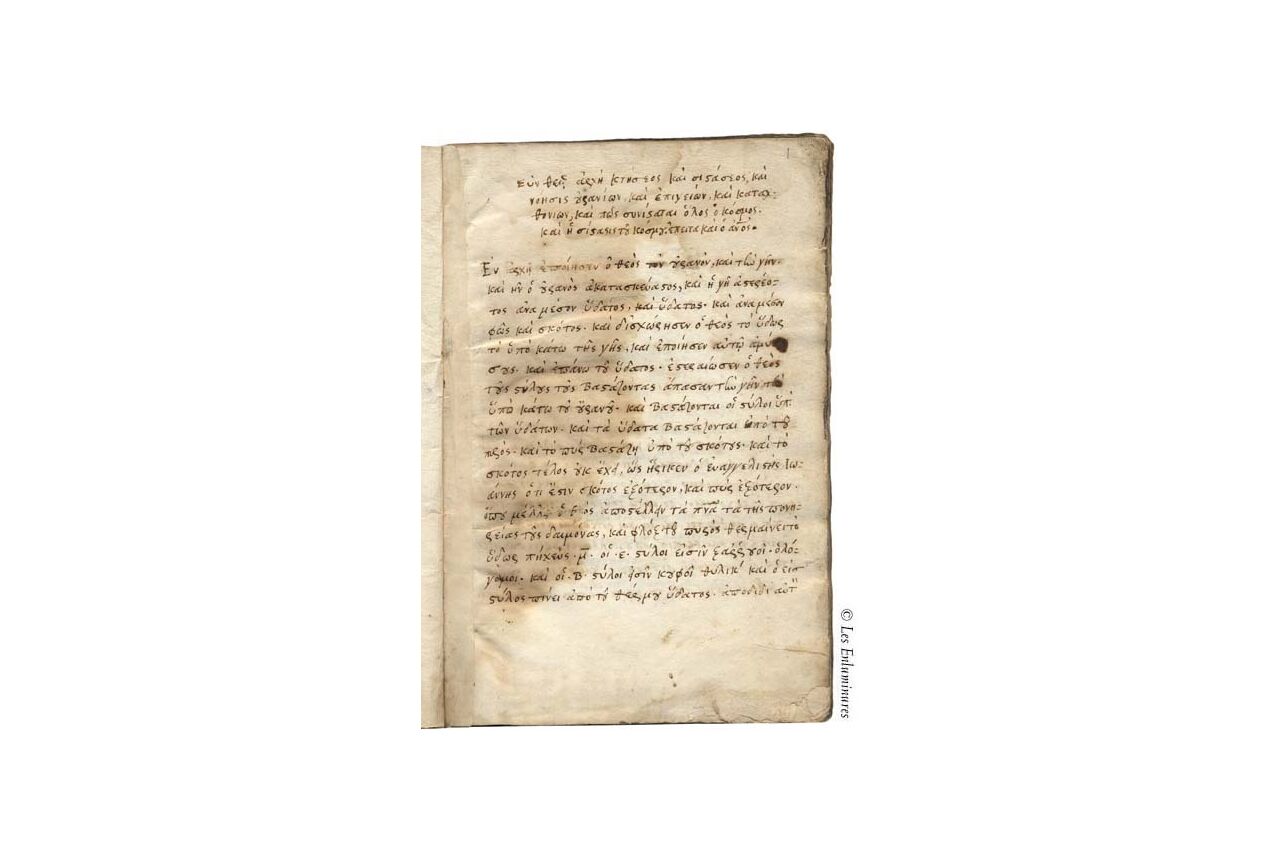 1
σὺν θεῷ ἀρχὴ κτήσεος καὶ καὶ
νοησις οὐρανίων, καὶ ἐπιγείων, καὶ καταχ-
θονίων, καὶ πῶς συνίσταται ὅλος ὁ κοσμος.
καὶ ἡ τοῦ κόσμου. ἔπειτα καὶ ὁ ἄνος.
Εν ἀρχῇ ἐποίησεν ὁ θεὸς τὸν οὐρανὸν, καὶ τὴν γῆν.
καὶ ἦν ὁ οὐρανὸς ἀκατασκεύαστος, καὶ ἡ γῆ
ἀνα μέσον ὕδατος, καὶ ὕδατος. καὶ ἀνα μέσον
φῶς καὶ σκότος. καὶ ὁ θεὸς τὸ ὕδωρ
τὸ ὑπὸ κάτω τῆς γῆς, καὶ ἐποίησεν αὐτῷ
καὶ ἐπάνω τοῦ ὕδατος. ἐστερέωσεν ὁ θεὸς
τοὺς στύλους τοὺς βαστάζοντας ἅπασαν τὴν γῆν
ὑπὸ κάτω τοῦ οὐρανοῦ. καὶ βαστάζονται οἱ στύλοι ὑπὸ
τῶν ὑδάτων. καὶ τὰ ὕδατα βαστάζονται ὑπὸ τοῦ
πυρός. καὶ τὸ πῦρ βαστάζη ὑπὸ τοῦ σκότους. καὶ τὸ
σκότος τέλος οὐκ ἔχει, ὡς ὁ εὐαγγελιστὴς Ἰω-
άννης ὅτι ἔστιν σκότος ἐξότερον, καὶ πῦρ ἐξότερον.
ὅπου μέλλει ὁ θεὸς ἀποστέλλειν τὰ πνα τὰ τῆς πονη-
ρείας τοὺς δαίμονας, καὶ φλὸξ τοῦ πυρὸς θερμαίνει τὸ
ὕδωρ πήχεις. μ. οἱ. ε. στύλοι εἰσὶν
καὶ οἱ. β. στύλοι κυφοὶ θυλικοὶ καὶ ὁ εἷς
στύλος πίνει ἀπὸ τοῦ θερμοῦ ὕδατος.
© Les Enluminures